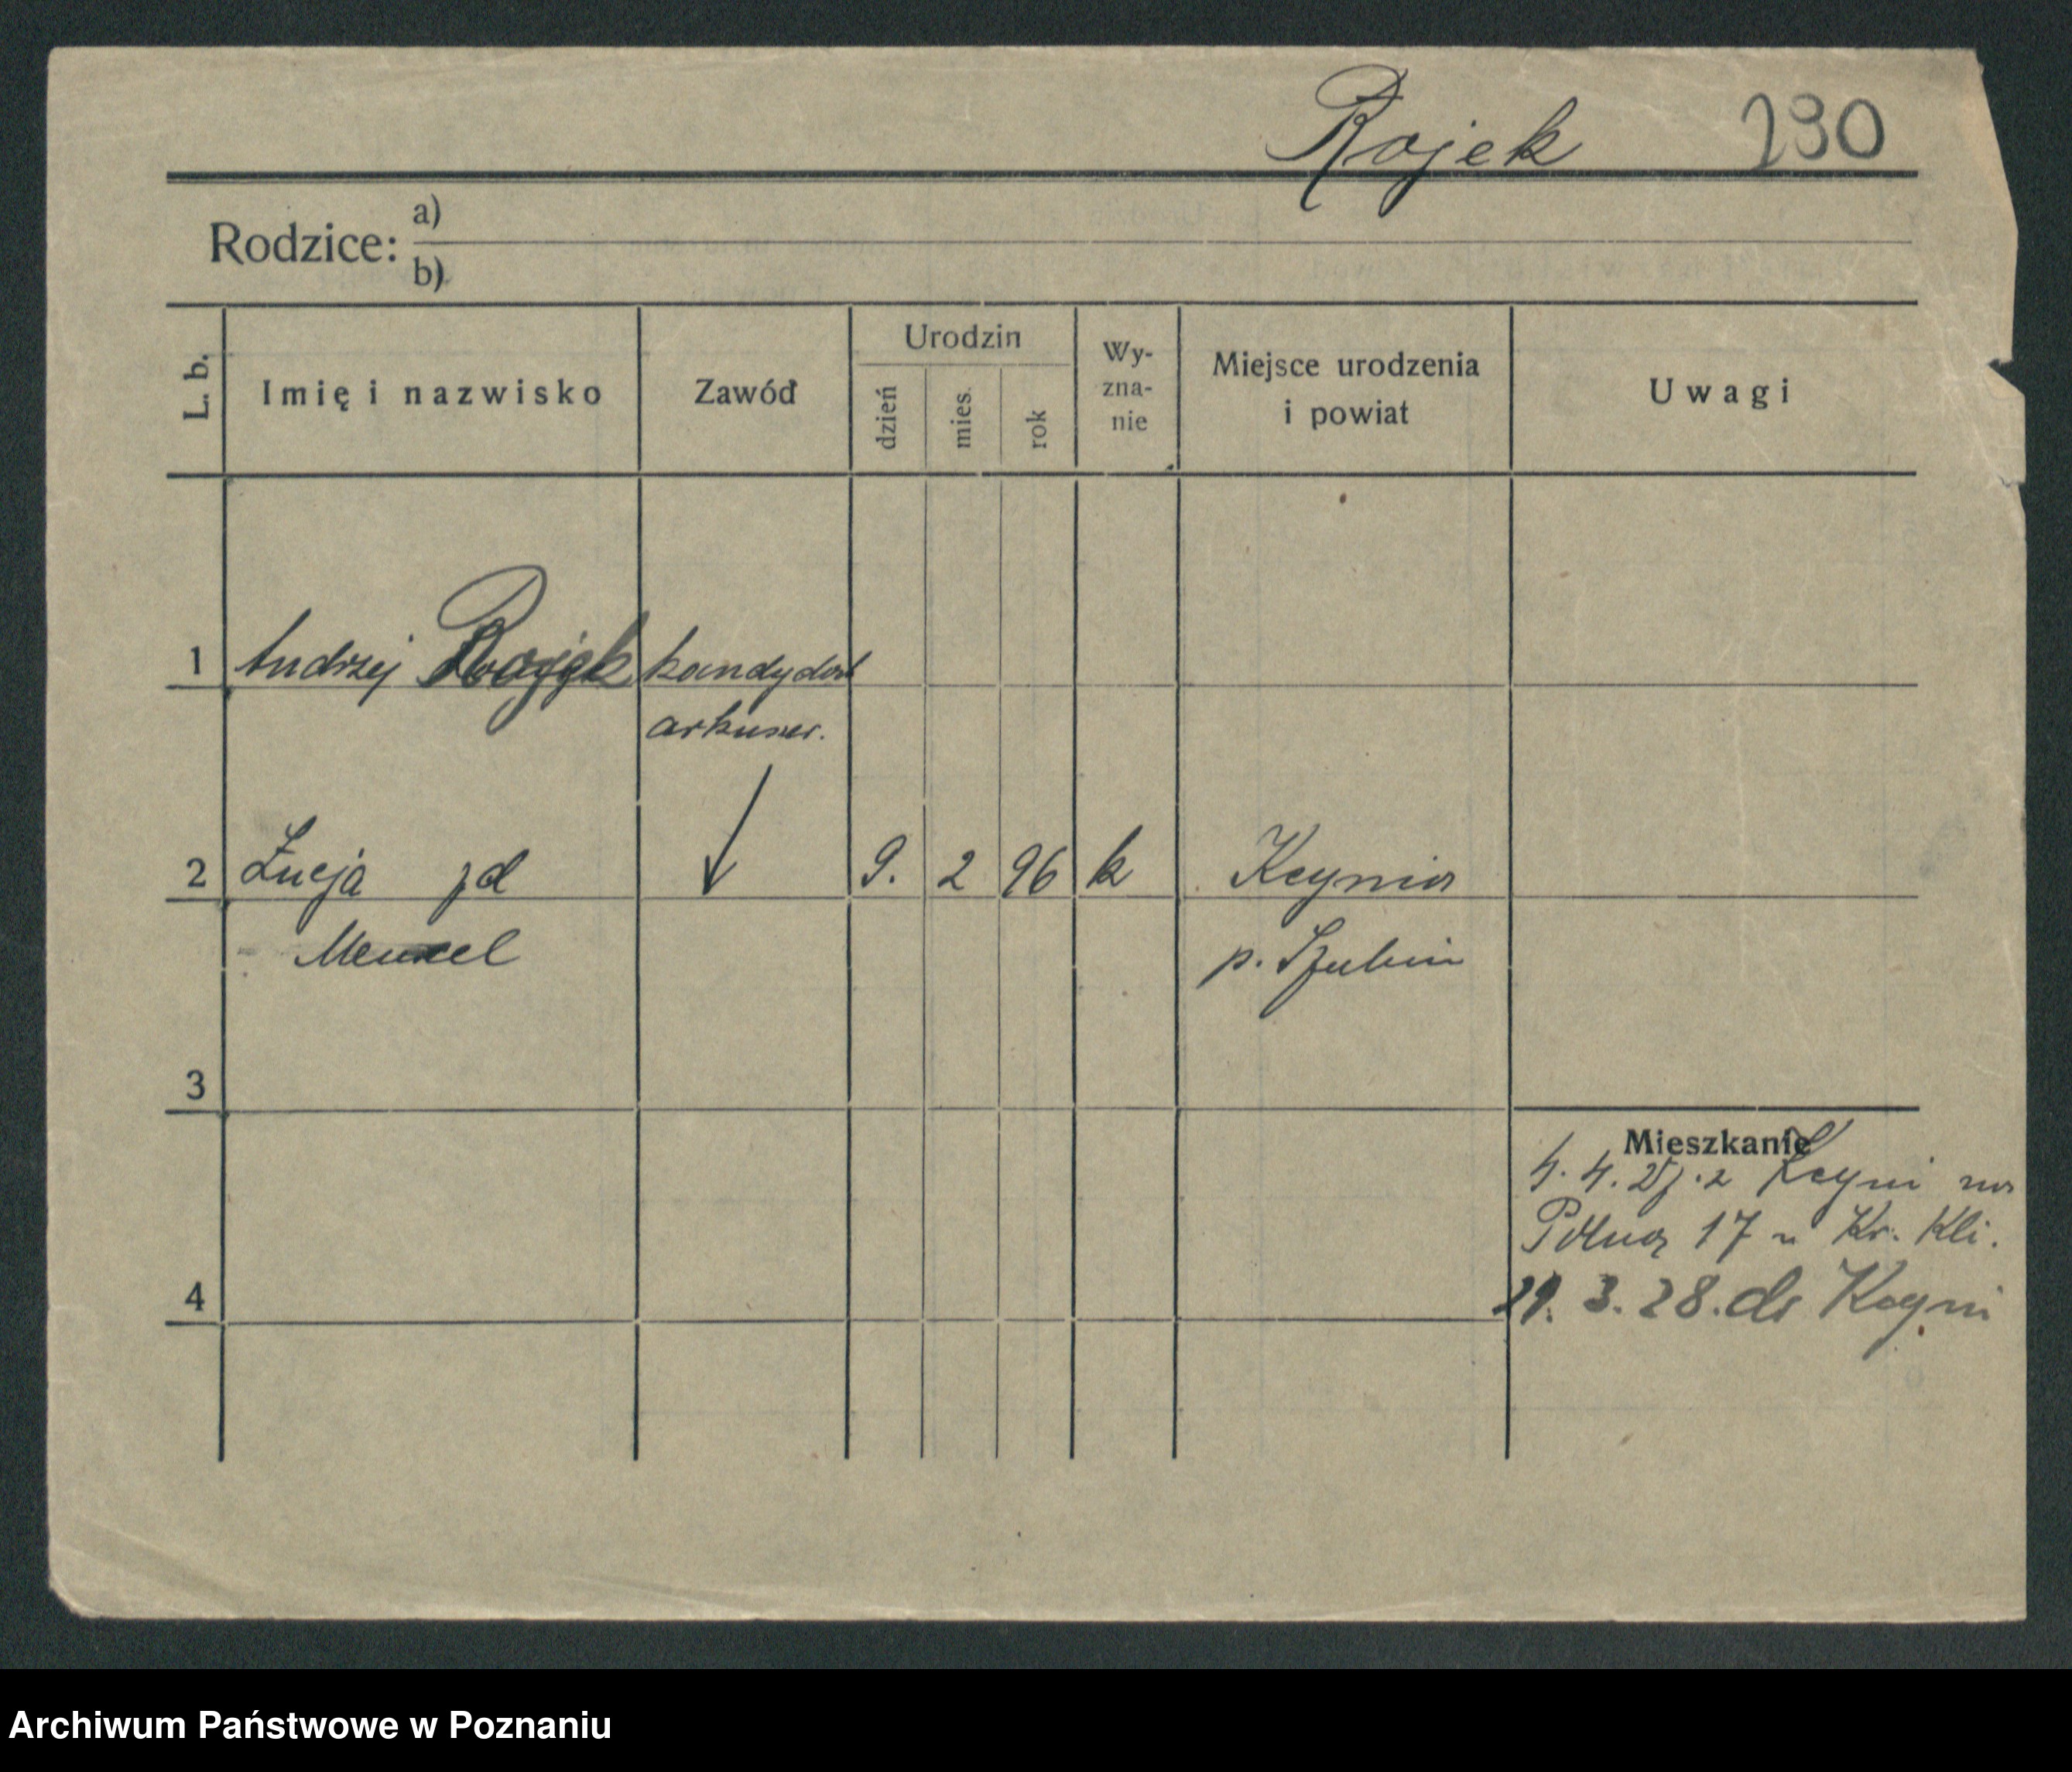 Rojek 290
Rodzice: a)
b)
L. b. Imię i nazwisko Zawód Urodzin dzień mies. rok Wy-zna-nie Miejsce urodzenia i powiat Uwagi
1 Andrzej Rojek kandydat
arkuszer.
2 Łucja zd 9. 2 96 k Kcynia
Menzel p. Szubin
3
Mieszkanie
4. 4. 27. z Kcyni na
Półwsi 17 u Kr. Kli.
4 29. 3. 28. do Kcyni
Archiwum Państwowe w Poznaniu